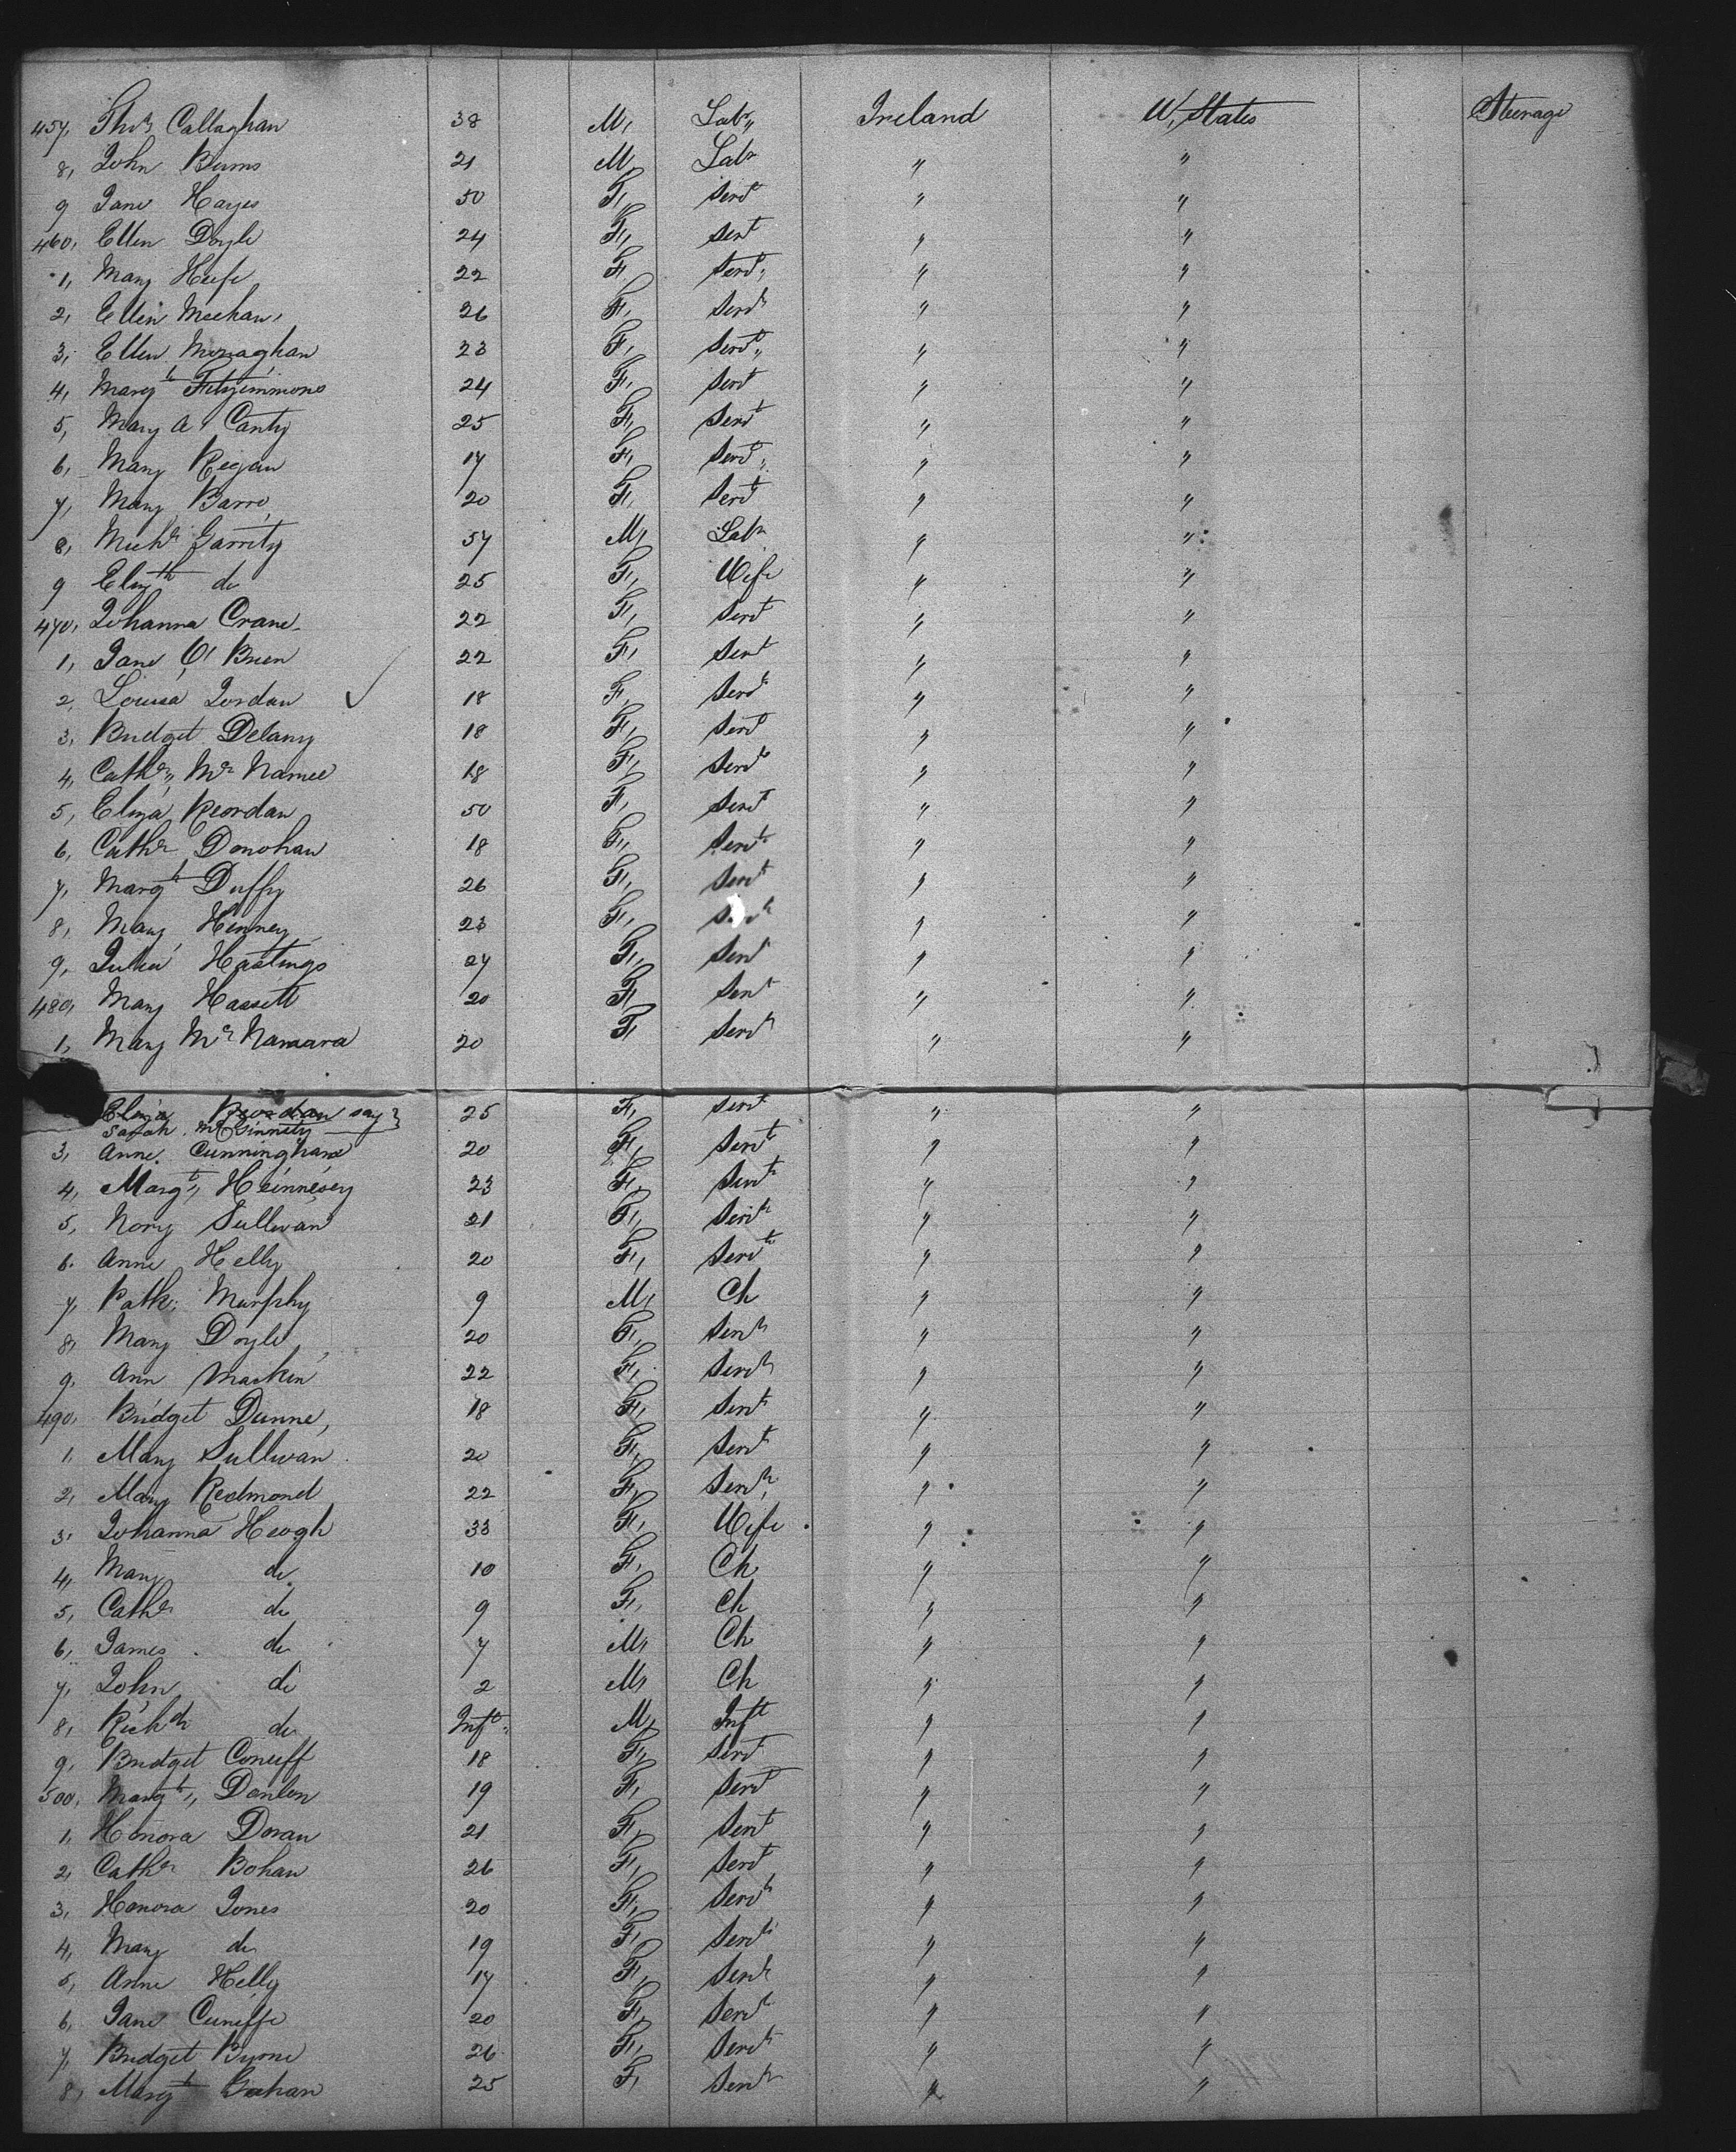 457, Thos Callaghan 38 M, Labr,, Ireland U, States Steerage
8, John Burns 21 M, Labr " "
9 Jane Hayes 50 F, Servt " "
460, Ellen Doyle 24 F, Servt " "
1, Mary Keefe 22 F, Servt " "
2, Ellen Meehan, 26 F, Servt " "
3, Ellen Monaghan 23 F, Servt,, " "
4, Margt Fitzsimmons 24 F, Servt " "
5, Mary A Canty 25 F, Servt " "
6, Mary Regan 17 F, Servt,, " "
7, Mary Barro, 20 F, Servt " "
8, Michl Garrity 57 M, Labr " "
9 Elizth do 25 F, Wife " "
470, Johanna Crane 22 F, Servt " "
1, Jane O'Brien 22 F, Servt " "
2, Louisa Jordan ✓ 18 F, Servt " "
3, Bridget Delany 18 F, Servt " "
4, Cathe,, Mc Namee 18 F, Servt " "
5, Eliza Reordan 50 F, Servt " "
6, Cathe Donohan 18 F, Servt " "
7, Margt Duffy 26 F, Servt " "
8, Mary Kenney 23 F, Servt " "
9, Julia Hastings 27 F, Servt " "
480, Mary Hassett 20 F, Servt " "
1, Mary McNamara 20 F, Servt " "
Eliza Reordan say } 25 F, Servt " "
Sarah McGinnety
3, Anne Cunningham 20 F, Servt " "
4, Margt,, Hennesey 23 F, Servt " "
5, Nory Sullivan 21 F, Servt " "
6. Anne Kelly 20 F, Servt " "
7, Patk. Murphy 9 M, Ch " "
8, Mary Doyle 20 F, Servt " "
9, Ann Mackin 22 F, Servt " "
490, Bridget Dunne, 18 F, Servt " "
1, Mary Sullivan 20 F, Servt " "
2, Mary Redmond 22 F, Servt " "
3, Johanna Keogh 33 F, Wife " "
4, Mary do 10 F, Ch " "
5, Cathe do 9 F, Ch " "
6, James do 7 M, Ch " "
7, John do 2 M, Ch " "
8, Richd do Inft,, M, Inft " "
9, Bridget Coneff 18 F, Servt " "
500, Margt,, Donlon 19 F, Servt " "
1, Honora Doran 21 F, Servt " "
2, Cathe Bohan 26 F, Servt " "
3, Honora Jones 20 F, Servt " "
4, Mary do 19 F, Servt " "
5, Anne Kelly 17 F, Servt " "
6, Jane Cuneffe 20 F, Servt " "
7, Bridget Byrne 26 F, Servt " "
8, Margt Gahan 25 F, Servt " "